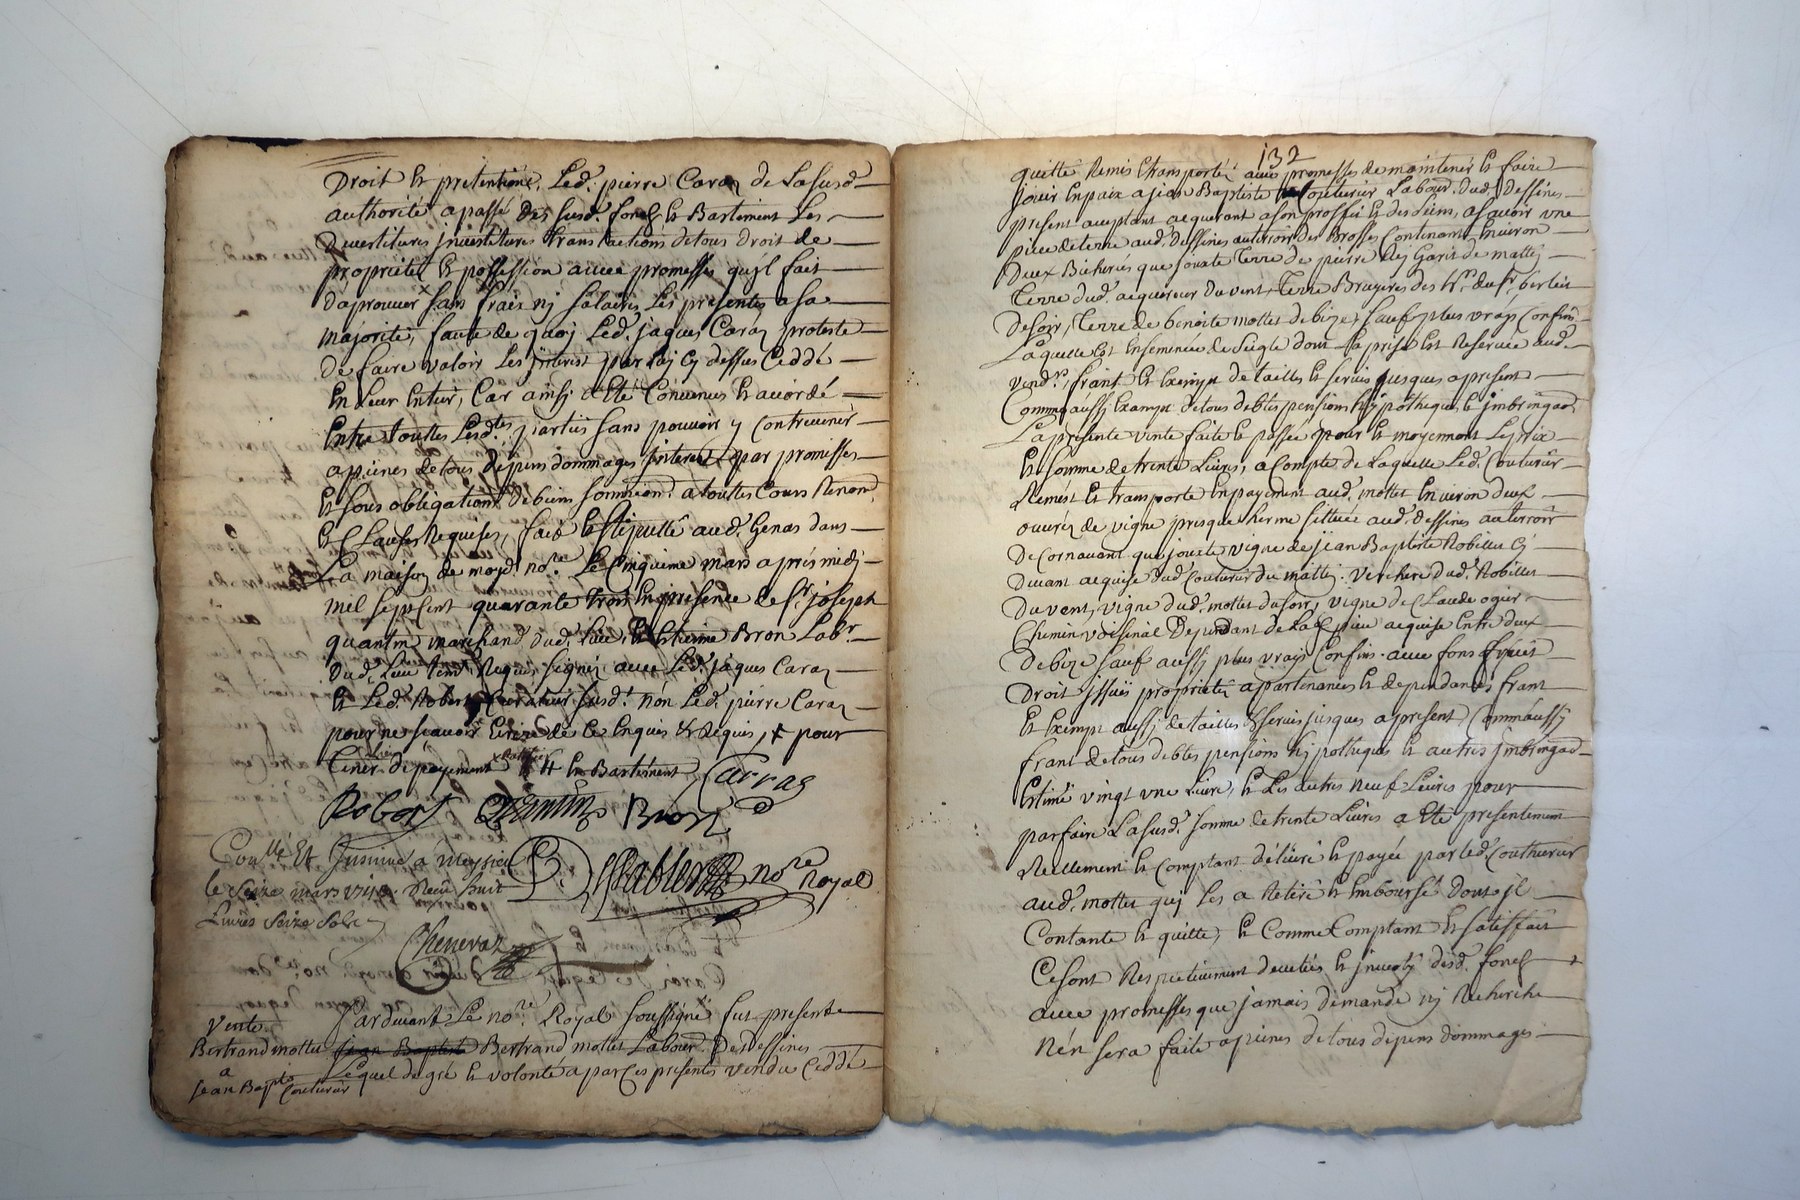 Droit & pretentions, Led. pierre Caraz de Lasusd.
authorité a passé des susd. fonds & Bastiment Les
Devestitures investitures translactions de tous droit de
proprieté & possession avec promesses qu'jl fait
d'aprouver sans fraix nj salaires Les presentes a sa
majorité, faute de quoj Led. jaques Caraz proteste
de faire valoir Les jnterest par luj cy dessus Ceddé
En Leur Entier, Car ainsj a Eté Convenus & accordé
Entre touttes Lesd.tes parties sans pouvoir y Contrevenir
a peines de tous depens dommages jnterest par promesses
& sous obligation de biens soumission a touttes Cours Renon.
& Clauses Requises, fait & stipullé aud. Genas dans
La maison de moyd. no.re Le Cinquieme mars après midj
mil sept Cent quarante trois En presence de Sr. joseph
quantin marchand dud. Lieu, & Etienne Bron Lab.r
dud. Lieu tem. Requis signés avec Led. jaques Caraz
& Led. Robert Curateur susd. non Led. pierre Caraz
pour ne scavoir Ecrire de ce Enquis & Requis, + pour
tenir lieu de payement & Bastiment Carras
Robert Quantin Bron
Con.llé Et Insinué a Meysieu
le Seize mars 1743. Recu huit
Livres Seize Sols
no.re Royal
Chenevaz
Pardevant Le no.re Royal soussigné fut presente
Vente
Bertrand mottet Jean Baptiste Bertrand mottet Labour. Des dessines
a
Lequel de gré & volonté a par Ces presentes vendu Ceddé
Jean Bap.te Couturier
132
quitté Remis & transporté avec promesses de maintenir & faire
jouir En paix a jean Baptiste Couturier Labour. dud. dessines
present acceptant acquerant a son proffit & des siens, a scavoir une
piece de terre aud. dessines au terroir des Brosses Contenant Environ
Deux Bicherées que jouxte Terre de pierre de matj
Terre dud. acquereur du vent, Terre Bruyeres des
de soir, Terre de benoite mottet de bize, sauf plus vrays Confins
Laquelle est Ensemencée de seigle dont la prise est Reservée aud.
vend.r, franc & Exempt de tailles & servis jusques a present
Comm'aussj Exempt de tous debtes pensions hypotheques & jmbringaõn
La presente vente faite & passée pour & moyennant Le prix
& somme de trente Livres, a Compte de Laquelle Led. Couturier
Remet & transporte En payement aud. mottet Environ deux
ouvrées de vigne presque herme sittuée aud. dessines au terroir
De Cornavant que jouxte vigne de jean Baptiste Robillet Cy
Devant acquise dud. Couturier du matj. Verchere dud. Robillet
du vent, vigne dud. mottet du soir, vigne de Claude oger
Chemin voisinal Dependant de Lad. piece acquise Entre deux
De bize sauf aussj plus vrays Confins. avec fons fruits
Droit jssües proprietés apartenances & dependances franc
& Exempt aussj de tailles & servis jusques a present Comm'aussj
franc de tous debtes pensions hypotheques & autres jmbringaõ
Estimé vingt une Livre, & Les autres neuf Livres pour
parfaire La susd. somme de trente Livres a Eté presentement
Reellement & Comptant délivré & payée par led. Couthurier
aud. mottet quj Les a Retiré & Emboursé dont jl
Contante & quitte, & Comme Comptant & satisfait
Ce sont Respectivement devetües & jnvestj desd. fonds
avec promesses que jamais demande nj Recherche
n'en sera faite a peines de tous depens dommages